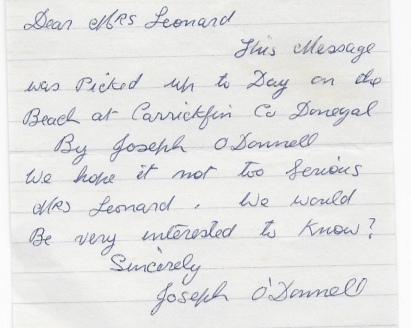 Dear Mrs Leonard
This Message
was Picked up to Day on the
Beach at Carrickfin Co Donegal
By Joseph O'Donnell
We hope it not too Serious
Mrs Leonard. We would
Be very interested to Know?
Sincerely
Joseph O'Donnell